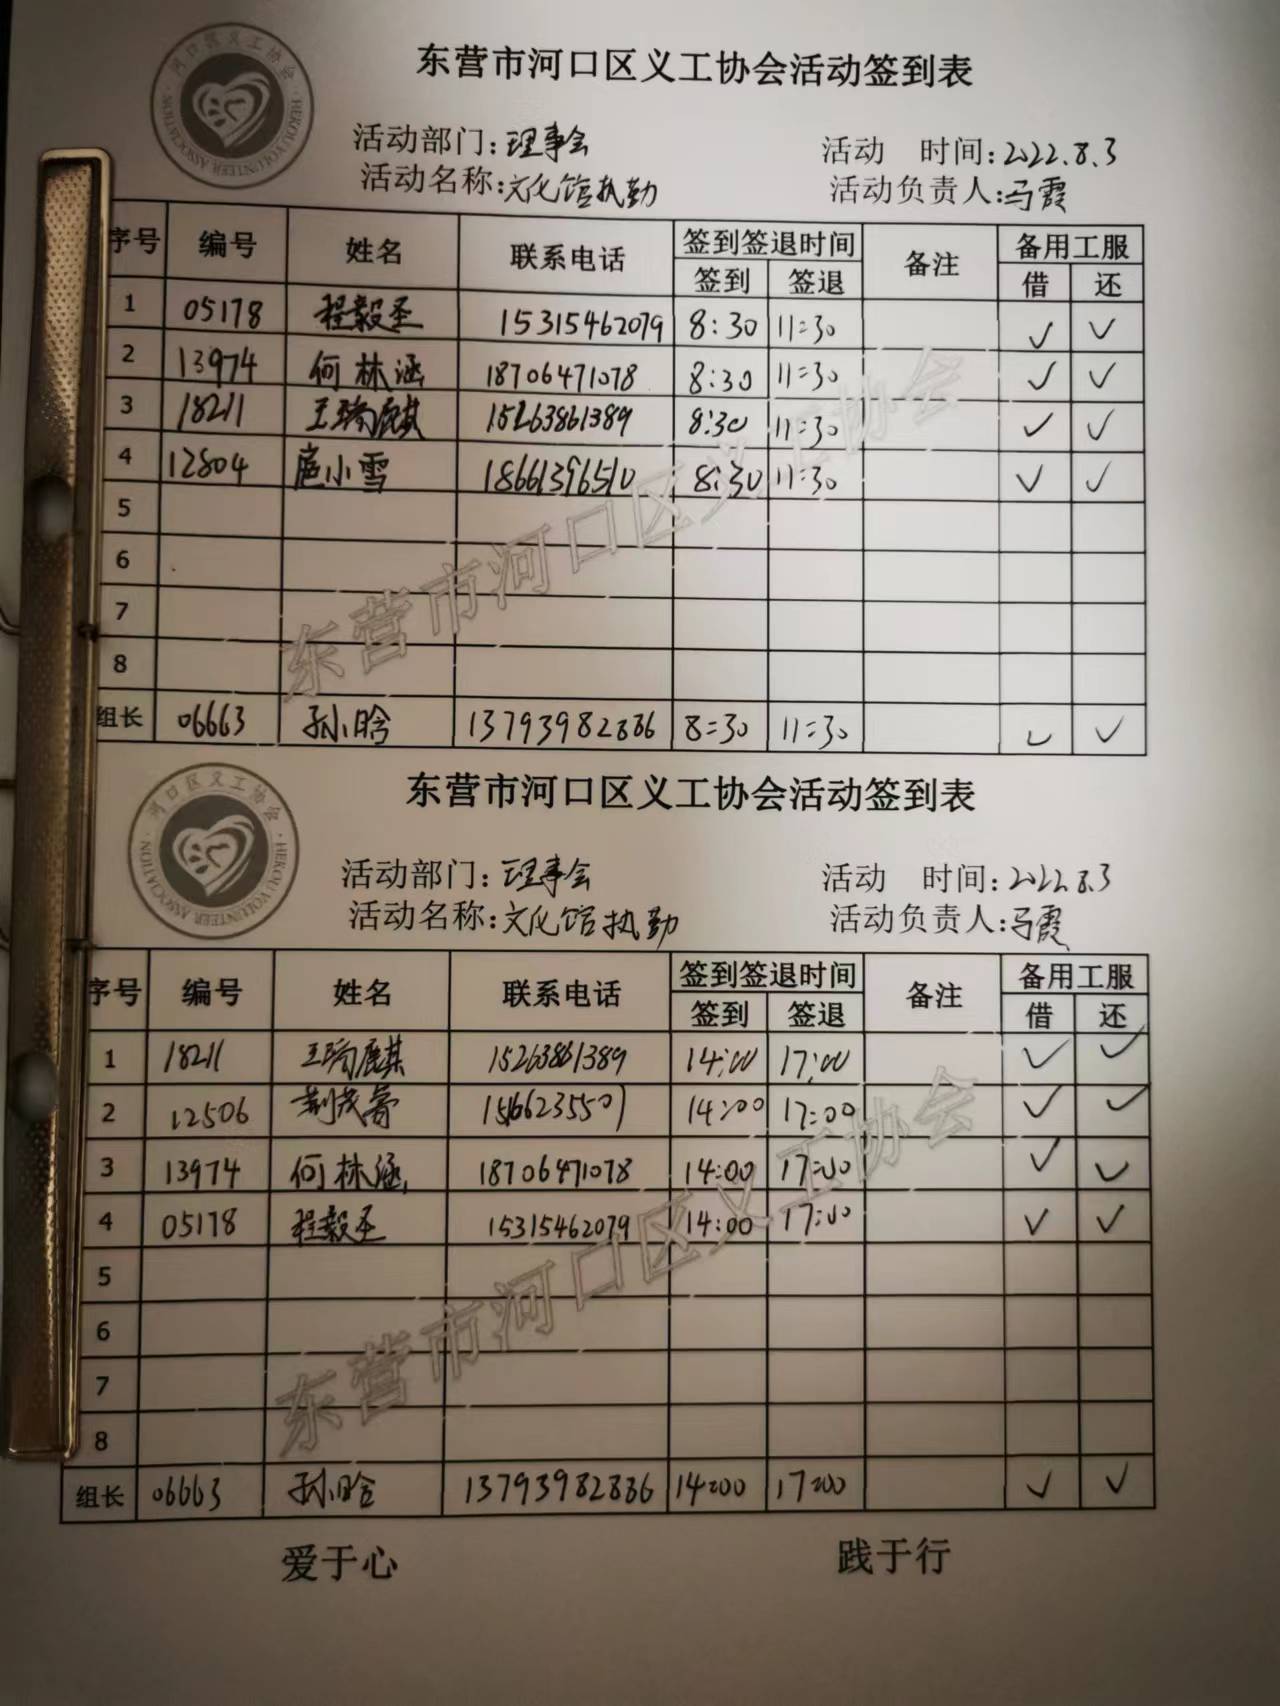 东营市河口区义工协会活动签到表
河口区义工协会
HEKOU VOLUNTEER ASSOCIATION
活动部门:理事会 活动 时间:2022.8.3
活动名称:文化馆执勤 活动负责人:马霞
序号 编号 姓名 联系电话 签到签退时间 备注 备用工服
签到 签退 借 还
1 05178 程毅圣 15315462079 8:30 11:30 ✓ ✓
2 13974 何林涵 18706471078 8:30 11:30 ✓ ✓
3 18211 王瑀麒 15263861389 8:30 11:30 ✓ ✓
4 12804 扈小雪 18661396510 8:30 11:30 ✓ ✓
5
6
7
8
组长 06663 孙小晗 13793982886 8:30 11:30 ✓ ✓
东营市河口区义工协会
东营市河口区义工协会活动签到表
河口区义工协会
HEKOU VOLUNTEER ASSOCIATION
活动部门:理事会 活动 时间:2022.8.3
活动名称:文化馆执勤 活动负责人:马霞
序号 编号 姓名 联系电话 签到签退时间 备注 备用工服
签到 签退 借 还
1 18211 王瑀麒 15263861389 14:00 17:00 ✓ ✓
2 12506 14:00 17:00 ✓ ✓
3 13974 何林涵 18706471078 14:00 17:00 ✓ ✓
4 05178 程毅圣 15315462079 14:00 17:00 ✓ ✓
5
6
7
8
组长 06663 孙小晗 13793982886 14:00 17:00 ✓ ✓
东营市河口区义工协会
爱于心 践于行